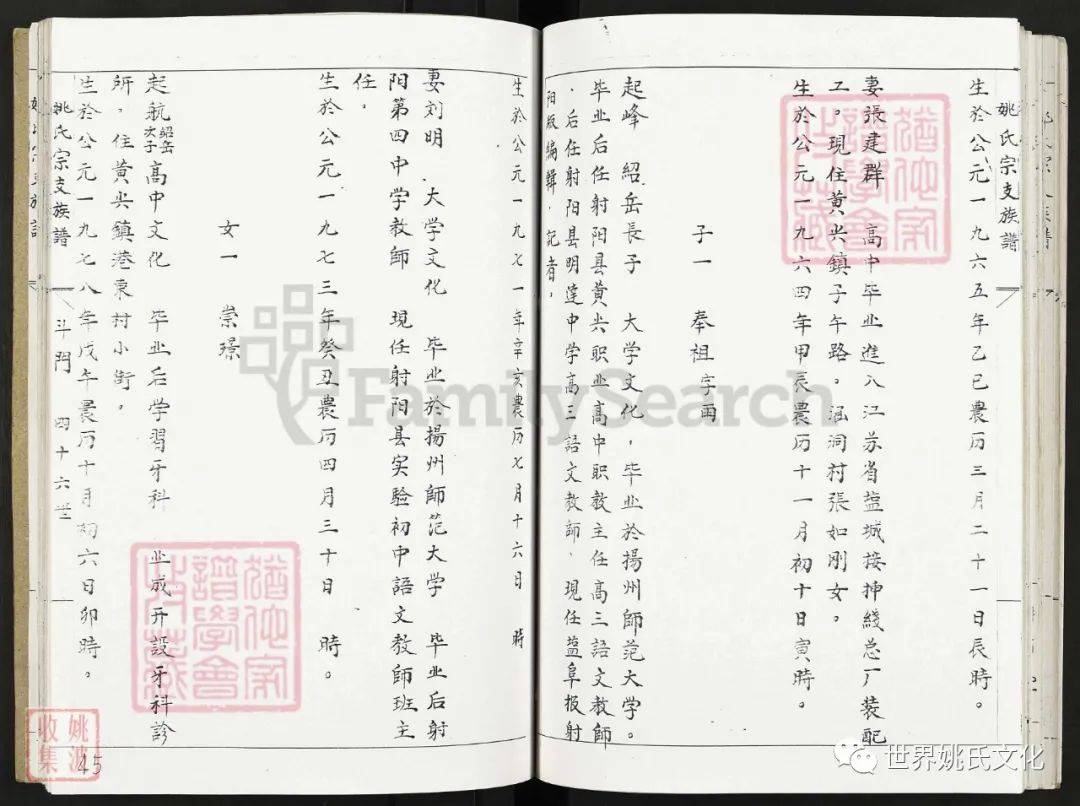 姚氏宗支族譜
生於公元一九六五年乙巳農历三月二十一日辰時。
妻張建群 高中毕业進入江苏省盐城接抻綫总厂装配
工。現住黄尖鎮子午路。涵洞村張如刚女。
生於公元一九六四年甲辰農历十一月初十日寅時。
子一 奉祖字雨
起峰 紹岳長子 大学文化,毕业於揚州師范大学。
毕业后任射阳县黄尖职业高中职教主任高三語文教師
、后任射阳县明達中学高三語文教師,現任盐阜报射
阳版編輯、記者。
生於公元一九七一年辛亥農历七月十六日 時
妻刘明 大学文化 毕业於揚州師范大学 毕业后射
阳第四中学教師 現任射阳县实验初中語文教師班主
任。
生於公元一九七三年癸丑農历四月三十日 時。
女一 崇璟
起航紹岳次子高中文化 毕业后学習牙科 业成开設牙科診
所。住黄尖鎮港東村小街。
生於公元一九七八年戊午農历十月初六日卯時。
姚氏宗支族譜 斗門 四十六世
45
姚波
收集
FamilySearch
世界姚氏文化